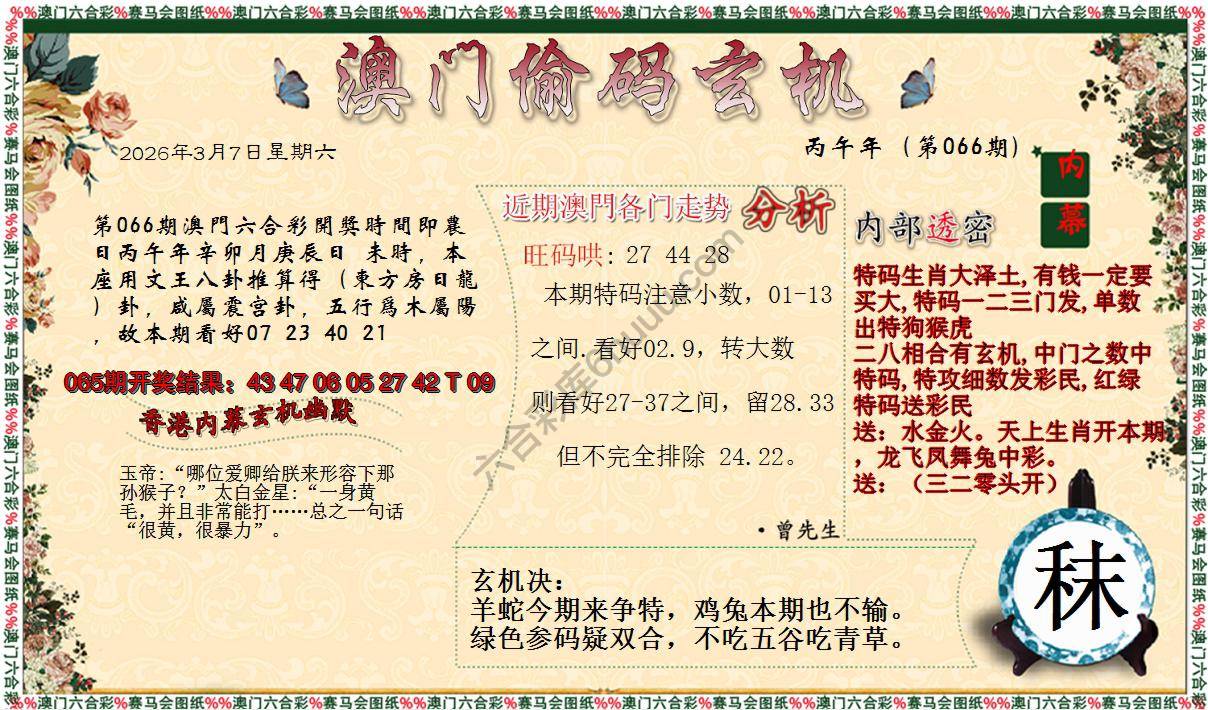 %%澳门六合彩%赛马会图纸%%澳门六合彩%赛马会图纸%%澳门六合彩%赛马会图纸%%澳门六合彩%赛马会图纸%%澳门六合彩%赛马会图纸%%澳门六合彩%赛马会图纸%%
澳门偷码玄机
2026年3月7日星期六
丙午年（第066期）
内
幕
第066期澳門六合彩開獎時間即農
日丙午年辛卯月庚辰日 未時，本
座用文王八卦推算得（東方房日龍
）卦，咸屬震宫卦，五行爲木屬陽
，故本期看好07 23 40 21
065期开奖结果：43 47 06 05 27 42 T 09
香港内幕玄机幽默
玉帝：“哪位爱卿给朕来形容下那
孙猴子？”太白金星：“一身黄
毛，并且非常能打……总之一句话
“很黄，很暴力”。
近期澳門各门走势 分析
旺码哄: 27 44 28
本期特码注意小数，01-13
之间.看好02.9，转大数
则看好27-37之间，留28.33
但不完全排除 24.22。
·曾先生
内部透密
特码生肖大泽土,有钱一定要
买大,特码一二三门发,单数
出特狗猴虎
二八相合有玄机,中门之数中
特码,特攻细数发彩民,红绿
特码送彩民
送：水金火。天上生肖开本期
，龙飞凤舞兔中彩。
送：（三二零头开）
玄机决：
羊蛇今期来争特，鸡兔本期也不输。
绿色参码疑双合，不吃五谷吃青草。
秣
%%澳门六合彩%赛马会图纸%%澳门六合彩%赛马会图纸%%澳门六合彩%赛马会图纸%%澳门六合彩%赛马会图纸%%澳门六合彩%赛马会图纸%%澳门六合彩%赛马会图纸%%